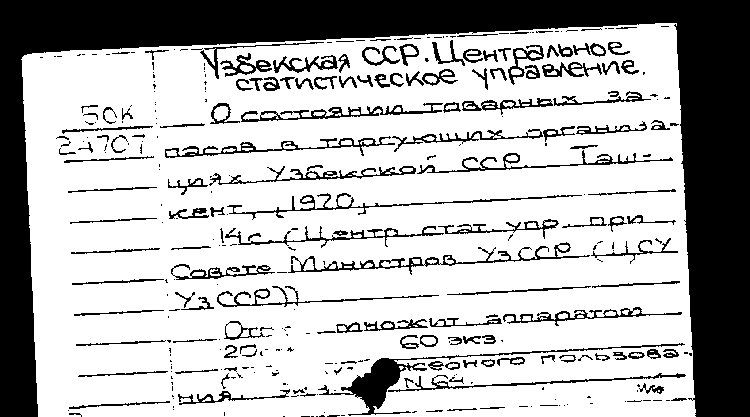 Узбекская ССР. Центральное
статистическое управление.
50К
О состоянии товарных за-
24707
пасов в торгующих организа-
циях Узбекской ССР. Таш-
кент, [1970].
14 с. (Центр. стат. упр. при
Совете Министров УзССР (ЦСУ
УзССР))
множит. аппаратом
60 экз.
пользова-
ния. N 64.